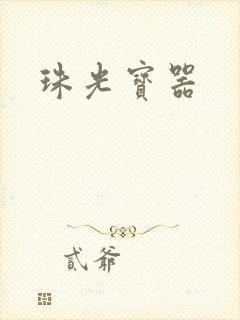 珠光寶器
貳爺